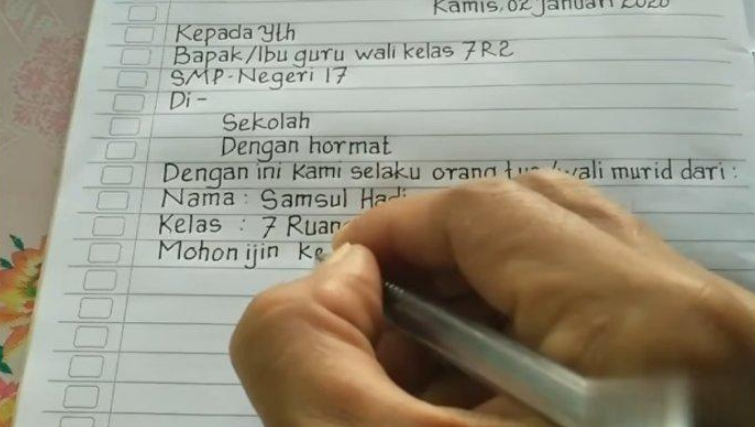 Kamis, 02 Januari 2020
Kepada Yth
Bapak/Ibu guru wali kelas 7R2
SMP-Negeri 17
Di-
Sekolah
Dengan hormat
Dengan ini Kami selaku orang wali murid dari :
Nama : Samsul Hadi
Kelas : 7 Ruan
Mohon ijin Ke